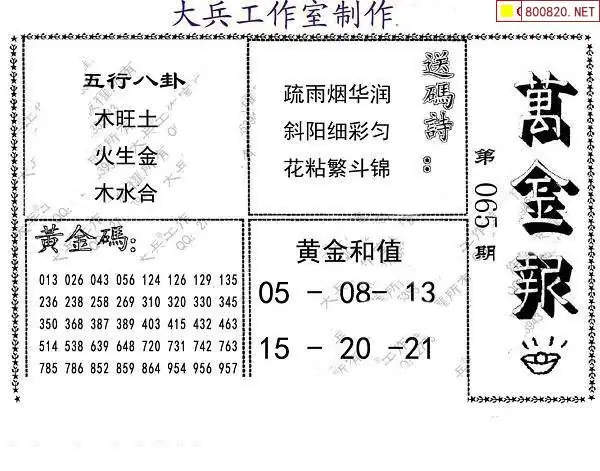 大兵工作室制作
800820.NET
五行八卦
木旺土
火生金
木水合
送碼詩:
疏雨烟华润
斜阳细彩匀
花粘繁斗锦
萬金報
第065期
黃金碼:
013 026 043 056 124 126 129 135
236 238 258 269 310 320 330 345
350 368 387 389 403 415 432 463
514 538 639 648 720 731 742 763
785 786 852 863 864 954 956 957
黄金和值
05 - 08- 13
15 - 20 -21